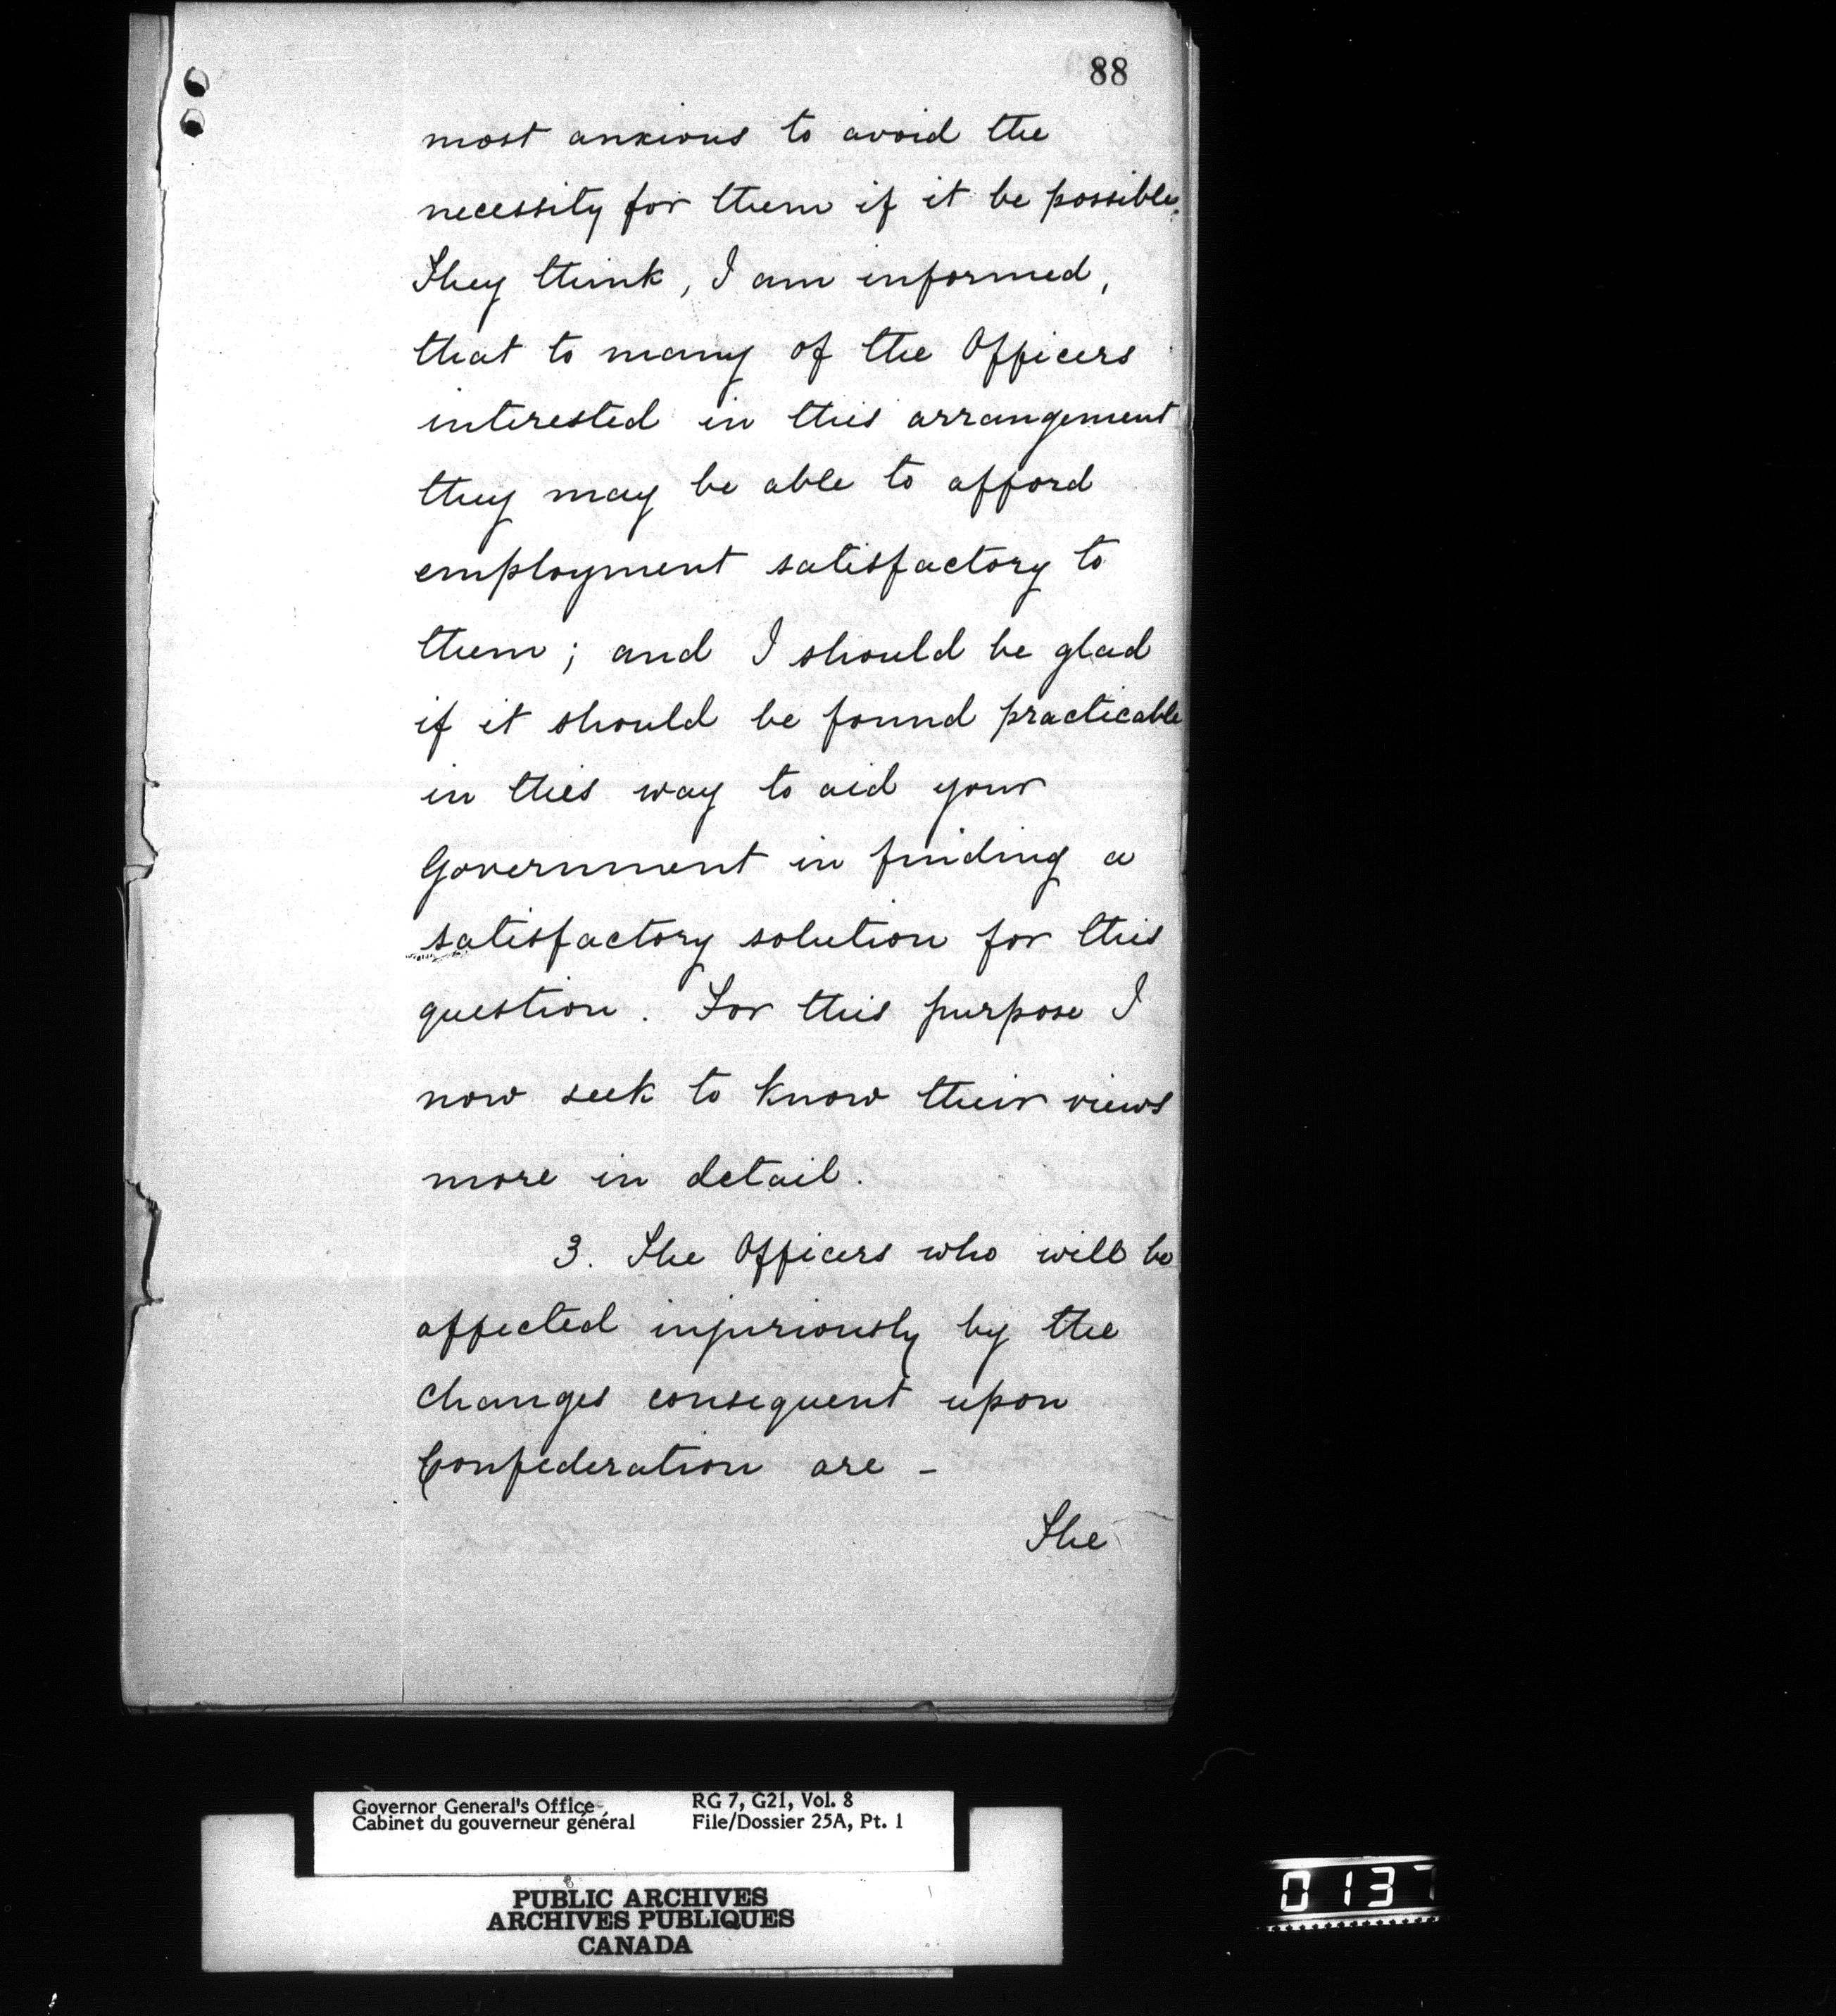 88
most anxious to avoid the
necessity for them if it be possible.
They think, I am informed,
that to many of the Officers
interested in this arrangement
they may be able to afford
employment satisfactory to
them; and I should be glad
if it should be found practicable
in this way to aid your
Government in finding a
satisfactory solution for this
question. For this purpose I
now seek to know their views
more in detail.
3. The Officers who will be
affected injuriously by the
changes consequent upon
Confederation are -
The
Governor General's Office RG 7, G21, Vol. 8
Cabinet du gouverneur général File/Dossier 25A, Pt. 1
PUBLIC ARCHIVES
ARCHIVES PUBLIQUES
CANADA
0137